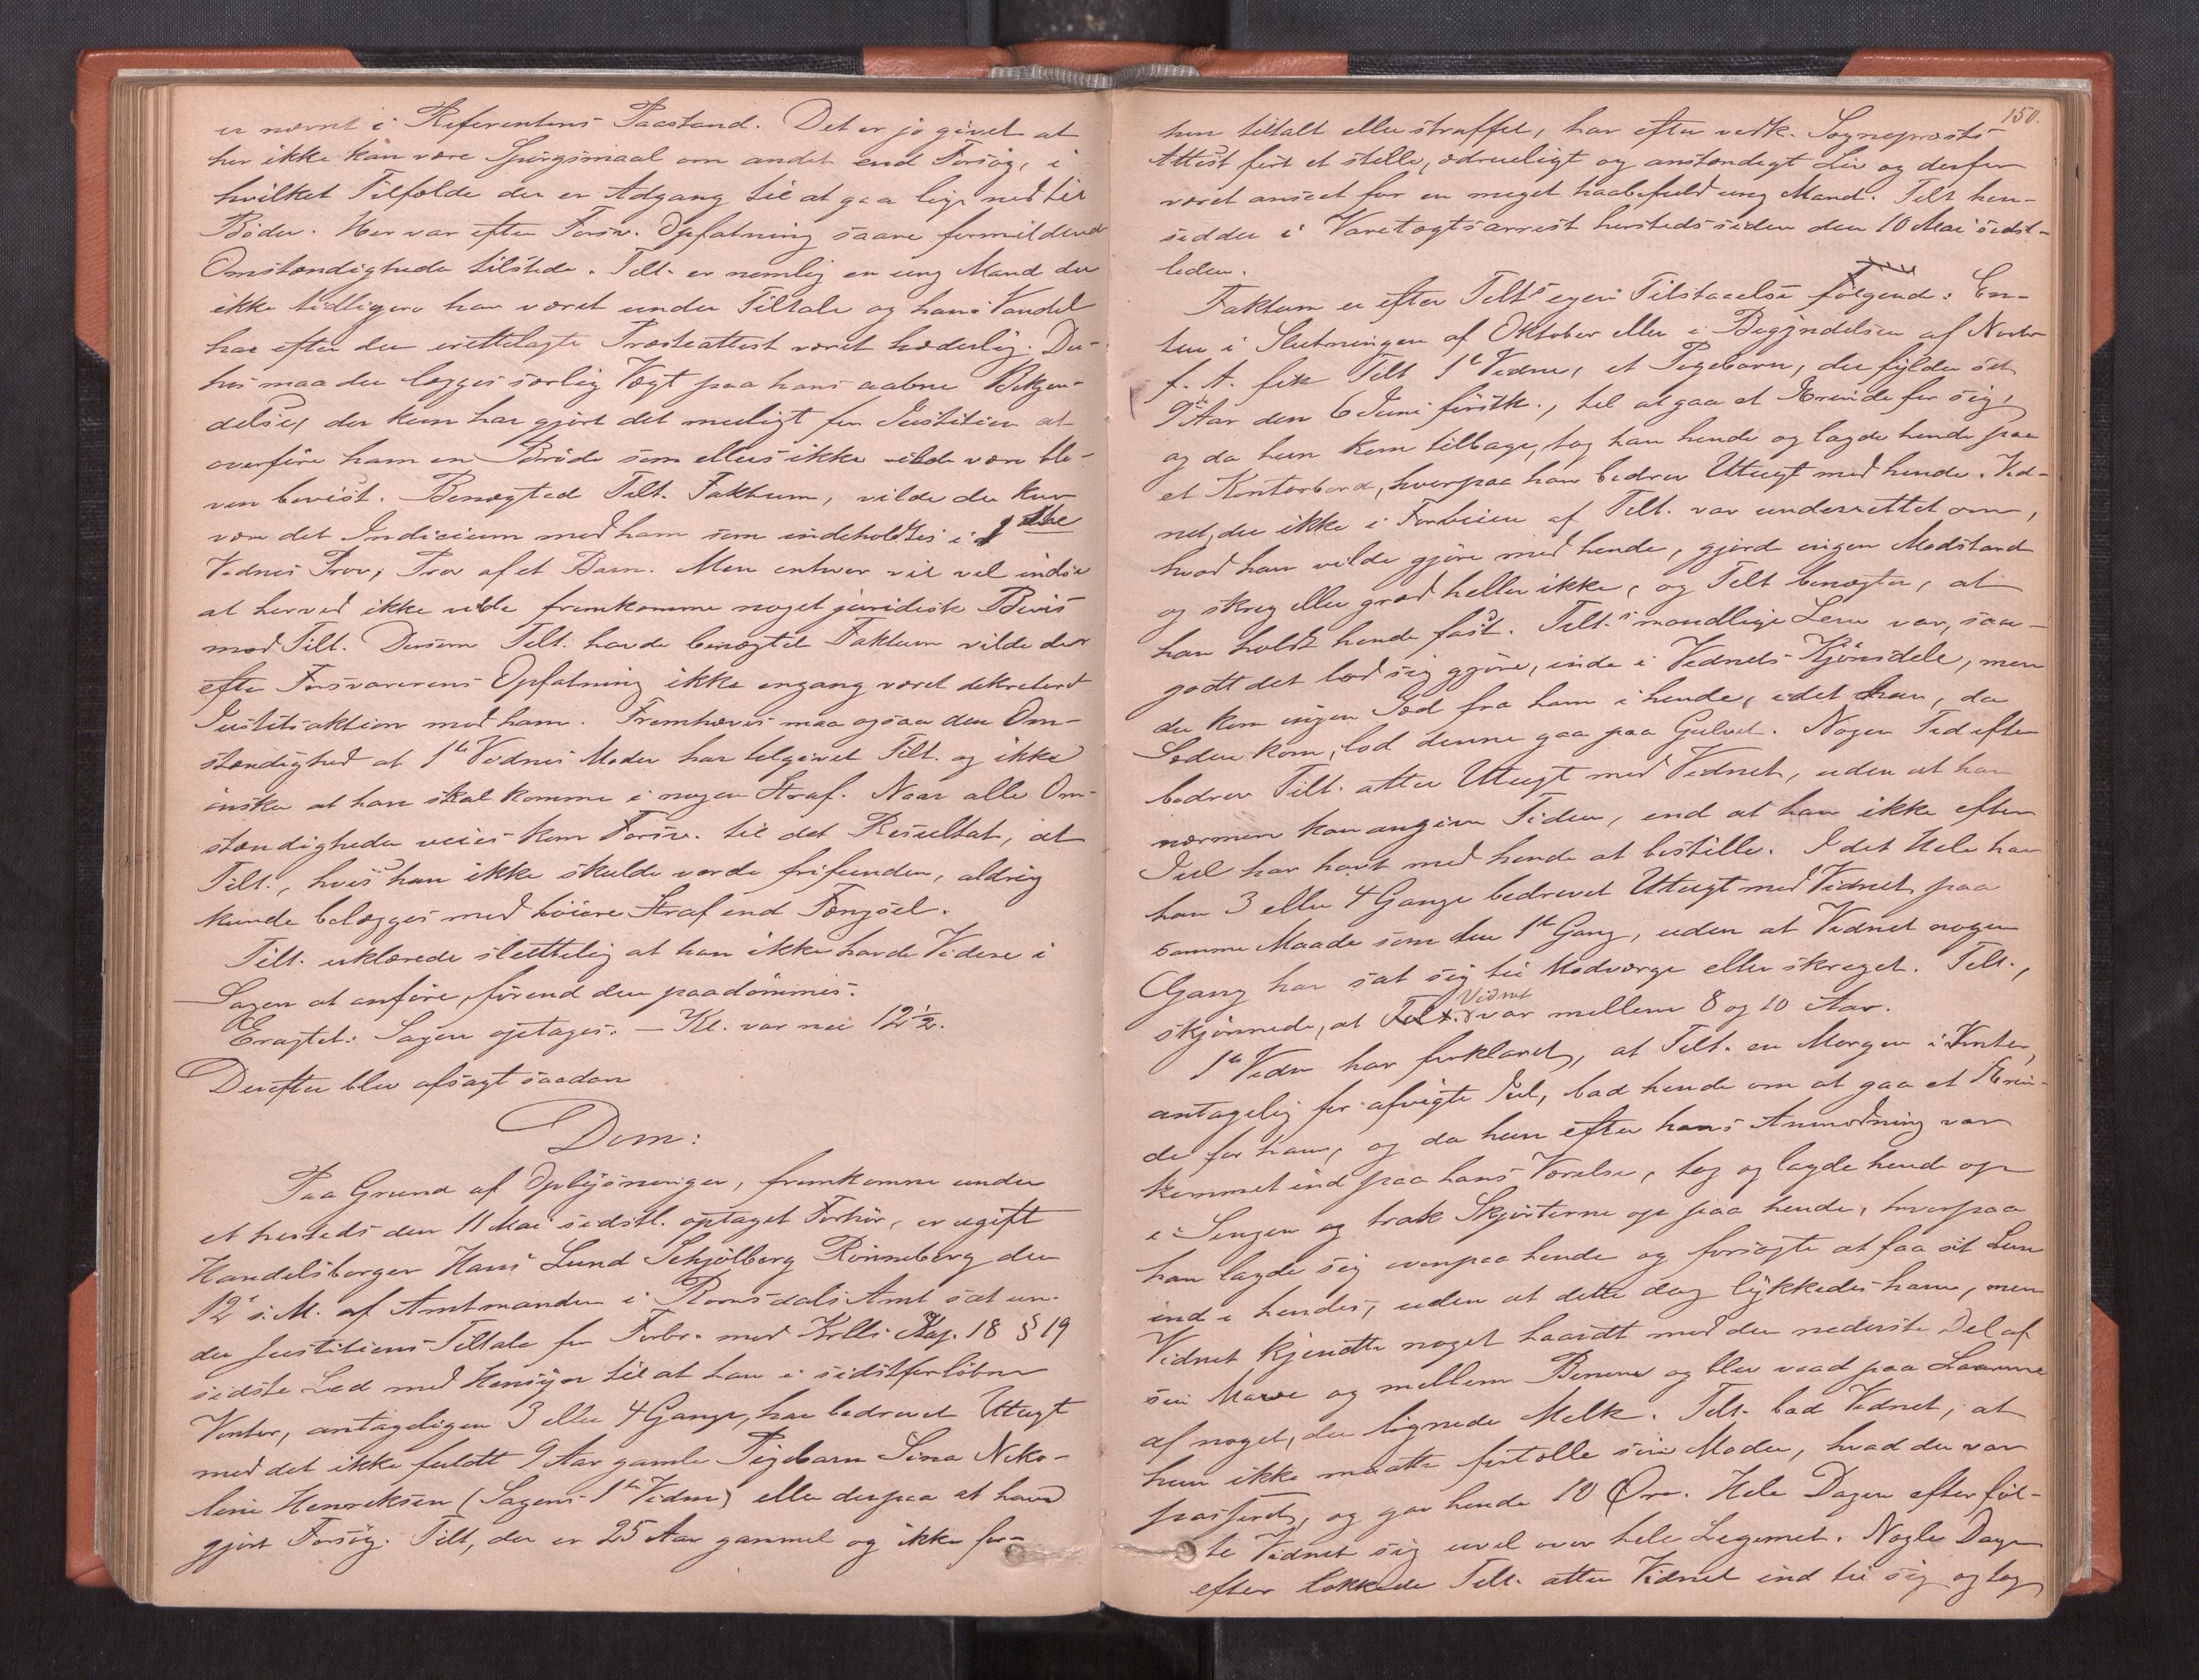 er nævnt i Referentens Paastand. Det er jo givet at
her ikke kan være Spørgsmaal om andet end Forsøg, i
hvilket Tilfælde der er Adgang til at gaa lige ned til
Bøder. Her var efter Forsv. Opfatning saare formildende
Omstændigheder tilstede. Tilt. er nemlig en ung Mand der
ikke tidligere har været under Tiltale og hans Vandel
har efter den irettelagte Præsteattest været hæderlig. Der-
hos maa der lægges særlig Vægt paa hans aabne Bekjen-
delse, der kun har gjort det muligt for Justitien at
overføre ham en Brøde som ellers ikke vilde være ble-
ven bevist. Benægted Tilt. Faktum, vilde der kun
være det Indicium mod ham som indeholdtes i 1ste
Vidnes Prov, Prov af et Barn. Men enhver vil vel indse
at herved ikke vilde fremkomme noget juridisk Bevis
mod Tilt. Dersom Tilt. havde benægtet Faktum vilde der
efter Forsvarerens Opfatning ikke engang været dekreteret
Justitsaktion mod ham. Fremhæves maa ogsaa den Om-
stændighed at 1ste Vidnes Moder har tilgivet Tilt. og ikke
ønsker at han skal komme i nogen Straf. Naar alle Om-
stændigheder veies kom Forsv. til det Resultat, at
Tilt., hvis han ikke skulde vorde frifunden, aldrig
kunde belægges med høiere Straf end Fængsel.
Tilt. erklærede sluttelig at han ikke havde Videre i
Sagen at anføre, førend den paadømmes.
Eragtet: Sagen optages. — Kl. var nu 12½.
Derefter blev afsagt saadan
Dom:
Paa Grund af Oplysninger, fremkomne under
et hersteds den 11 Mai sidstl. optaget Forhør, er ugift
Handelsborger Hans Lund Schjølberg Rønneberg den
12te s. M. af Amtmanden i Romsdals Amt sat un-
der Justitiens Tiltale for Forbr. mod Krll's Kap. 18 § 19
sidste Led med Hensyn til at han i sidstforløbne
Vinter, antageligen 3 eller 4 Gange, har bedrevet Utugt
med det ikke fuldt 9 Aar gamle Pigebarn Sina Niko-
line Henriksen (Sagens 1ste Vidne) eller derpaa at have
gjort Forsøg. Tilt., der er 25 Aar gammel og ikke før-
150.
hen tiltalt eller straffet, har efter vedk. Sognepræsts
Attest ført et stille, ædrueligt og anstændigt Liv og derfor
været anseet for en meget haabefuld ung Mand. Tilt. hen-
sidder i Varetægtsarrest hersteds siden den 10 Mai sidst-
leden.
Faktum er efter Tilt's egen Tilstaaelse følgende: En-
ten i Slutningen af Oktober eller i Begyndelsen af Novbr
f. A. fik Tilt. 1ste Vidne, et Pigebarn, der fylder sit
9de Aar den 6 Juni førstk., til at gaa et Ærinde for sig,
og da hun kom tilbage, tog han hende og lagde hende paa
et Kontorbord, hvorpaa han bedrev Utugt med hende. Vid-
net, der ikke i Forveien af Tilt. var underrettet om,
hvad han vilde gjøre med hende, gjorde ingen Modstand
og skreg eller græd heller ikke, og Tilt. benægter, at
han holdt hende fast. Tilt.'s mandlige Lem var, saa-
godt det lod sig gjøre, inde i Vidnets Kjønsdele, men
der kom ingen Sæd fra ham i hende, idet han, da
Sæden kom, lod denne gaa paa Gulvet. Nogen Tid efter
bedrev Tilt. atter Utugt med Vidnet, uden at han
nærmere kan angive Tiden, end at han ikke efter
Jul har havt med hende at bestille. I det Hele har
han 3 eller 4 Gange bedrevet Utugt med Vidnet paa
samme Maade som den 1ste Gang, uden at Vidnet nogen
Gang har sat sig til Modværge eller skreget. Tilt.,
skjønnede, at Vidnet var mellem 8 og 10 Aar.
1ste Vidne har forklaret, at Tilt. en Morgen i Vinter,
antagelig før afvigte Jul, bad hende om at gaa et Ærin-
de for ham, og da hun efter hans Anmodning var
kommet ind paa hans Værelse, tog og lagde hende op
i Sengen og trak Skjørterne op paa hende, hvorpaa
han lagde sig ovenpaa hende og forsøgte at faa sit Lem
ind i hendes, uden at dette dog lykkedes ham, men
Vidnet kjendte noget haardt mod den nederste Del af
sin Mave og mellem Benene og blev vaad paa Laarene
af noget, der lignede Melk. Tilt. bad Vidnet, at
hun ikke maatte fortælle sin Moder, hvad der var
passeret, og gav hende 10 Øre. Hele Dagen efter føl-
te Vidnet sig uvel over hele Legemet. Nogle Dage
efter lokkede Tilt. atter Vidnet ind til sig og tog